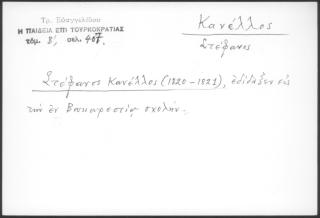 Τρ. Εὐαγγελίδου
Η ΠΑΙΔΕΙΑ ΕΠΙ ΤΟΥΡΚΟΚΡΑΤΙΑΣ
τόμ. Β', σελ. 407.
Κανέλλος
Στέφανος
Στέφανος Κανέλλος (1820-1821), ἐδίδαξεν εἰς
τὴν ἐν Βουκουρεστίῳ σχολήν.